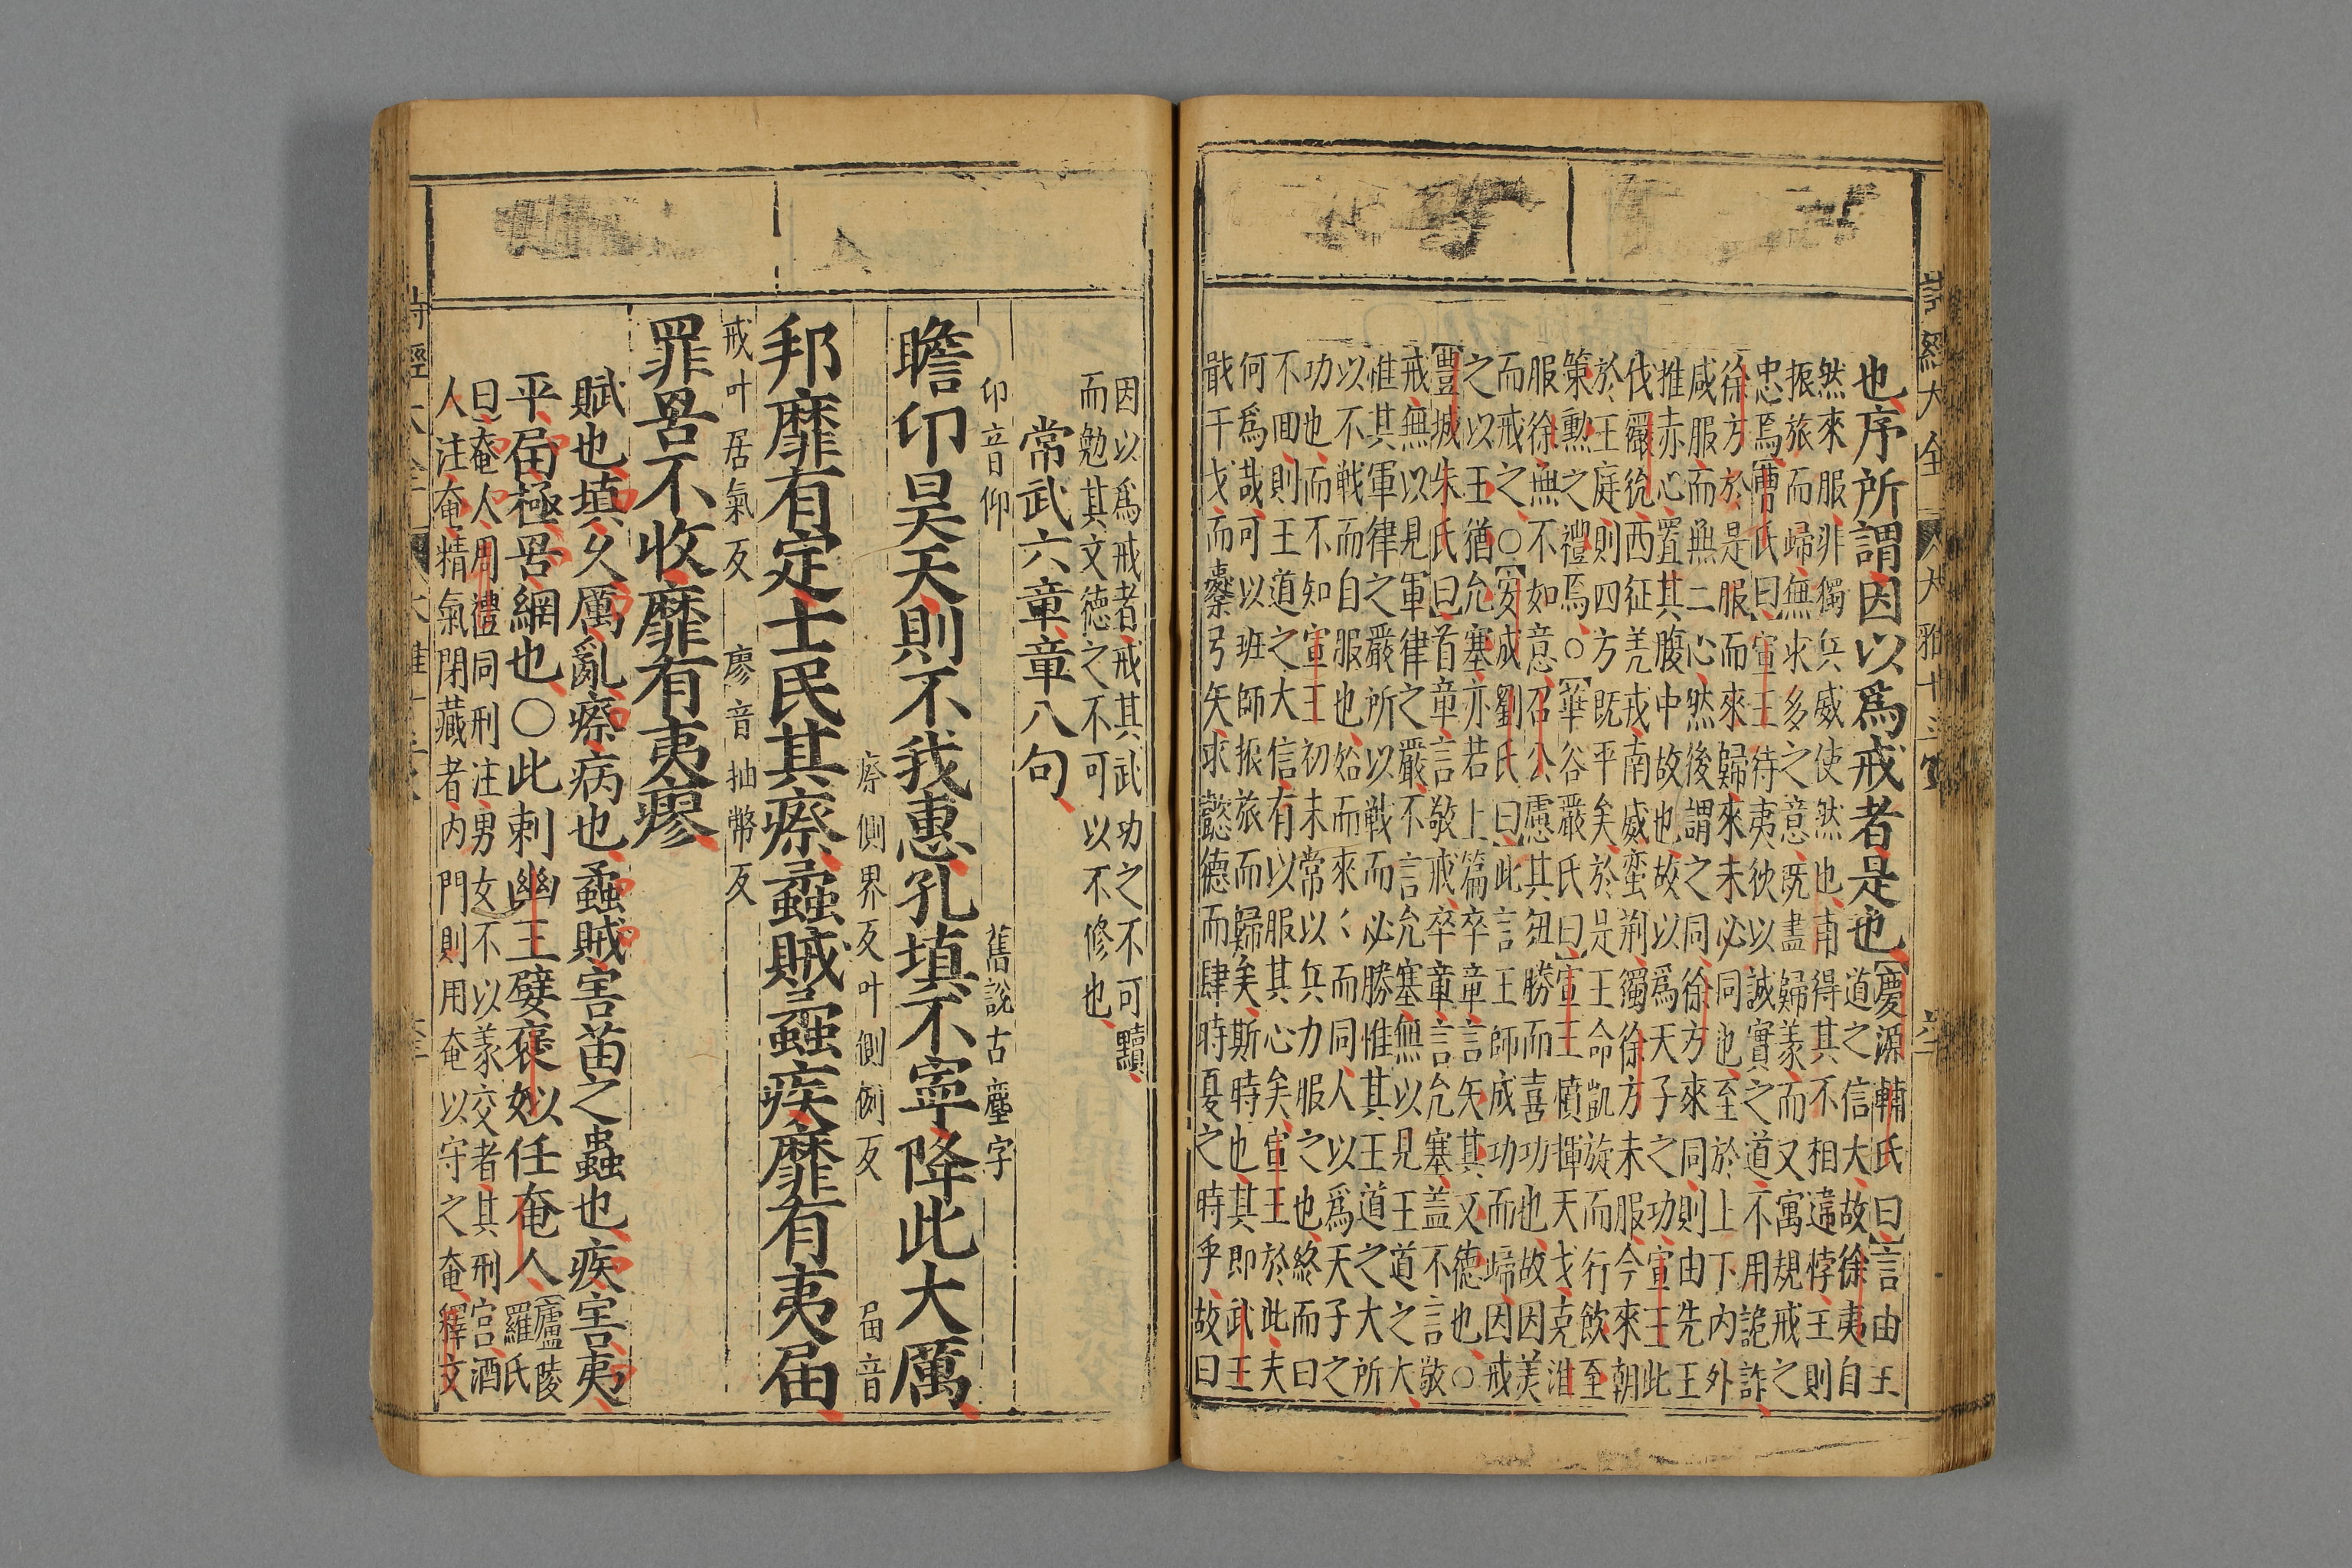 詩經大全
也序所謂因以爲戒者是也【慶源輔氏曰】言由王
道之信大故徐夷自
然來服非獨兵威使然也甫得其不相違悖王則
振旅而歸無求多之意既盡歸美而又寓規戒之
忠焉【曹氏曰】宣王待夷狄以誠實之道不用詭詐
徐方於是服而來歸來未必同也至於上下内外
咸服而無二心然後謂之同徐方來同則由先王
推赤心置其腹中故也故以爲天子之功宣王此
伐玁狁西征羌戎南威蛮荆獨徐方未服今來朝
於王庭則四方既平矣於是王命凱旋而行飲至
策勲之禮焉○【華谷嚴氏曰】宣王憤揮天戈克淮
服徐無不如意召公慮其狃勝而喜功也故因美
而戒之○【安成劉氏曰】此言王師成功而歸因戒
之以王猶允塞亦若上篇卒章言矢其文德也○
【豐城朱氏曰】首章言敬戒卒章言允塞盖不言敬
戒無以見軍律之嚴不言允塞無以見王道之大
惟其軍律之嚴所以戰而必勝惟其王道之大所
以不戰而自服也始而來〻而同人以爲天子之
功也而不知宣王初未常以兵力服之也終而曰
不回則王道之大信有以服其心矣宣王於此夫
何爲哉可以班師振旅而歸矣斯時也其即武王
戢干戈而櫜弓矢求懿德而肆時夏之時乎故曰
因以爲戒者戒其武功之不可黷
而勉其文徳之不可以不修也
常武六章章八句
卬音仰 舊說古塵字
瞻卬昊天則不我惠孔填不寧降此大厲
瘵側界反叶側例反 届音
邦靡有定士民其瘵蟊賊蟊疾靡有夷届
戒叶居氣反 廖音抽幣反
罪罟不收靡有夷瘳
賦也填久厲亂瘵病也蟊賊害苗之蟲也疾害夷
平届極罟網也○此刺幽王嬖褒姒任奄人【廬陵
羅氏
曰】奄人周禮同刑注男女不以義交者其刑宫酒
人注奄精氣閉藏者内門則用奄以守之奄釋文